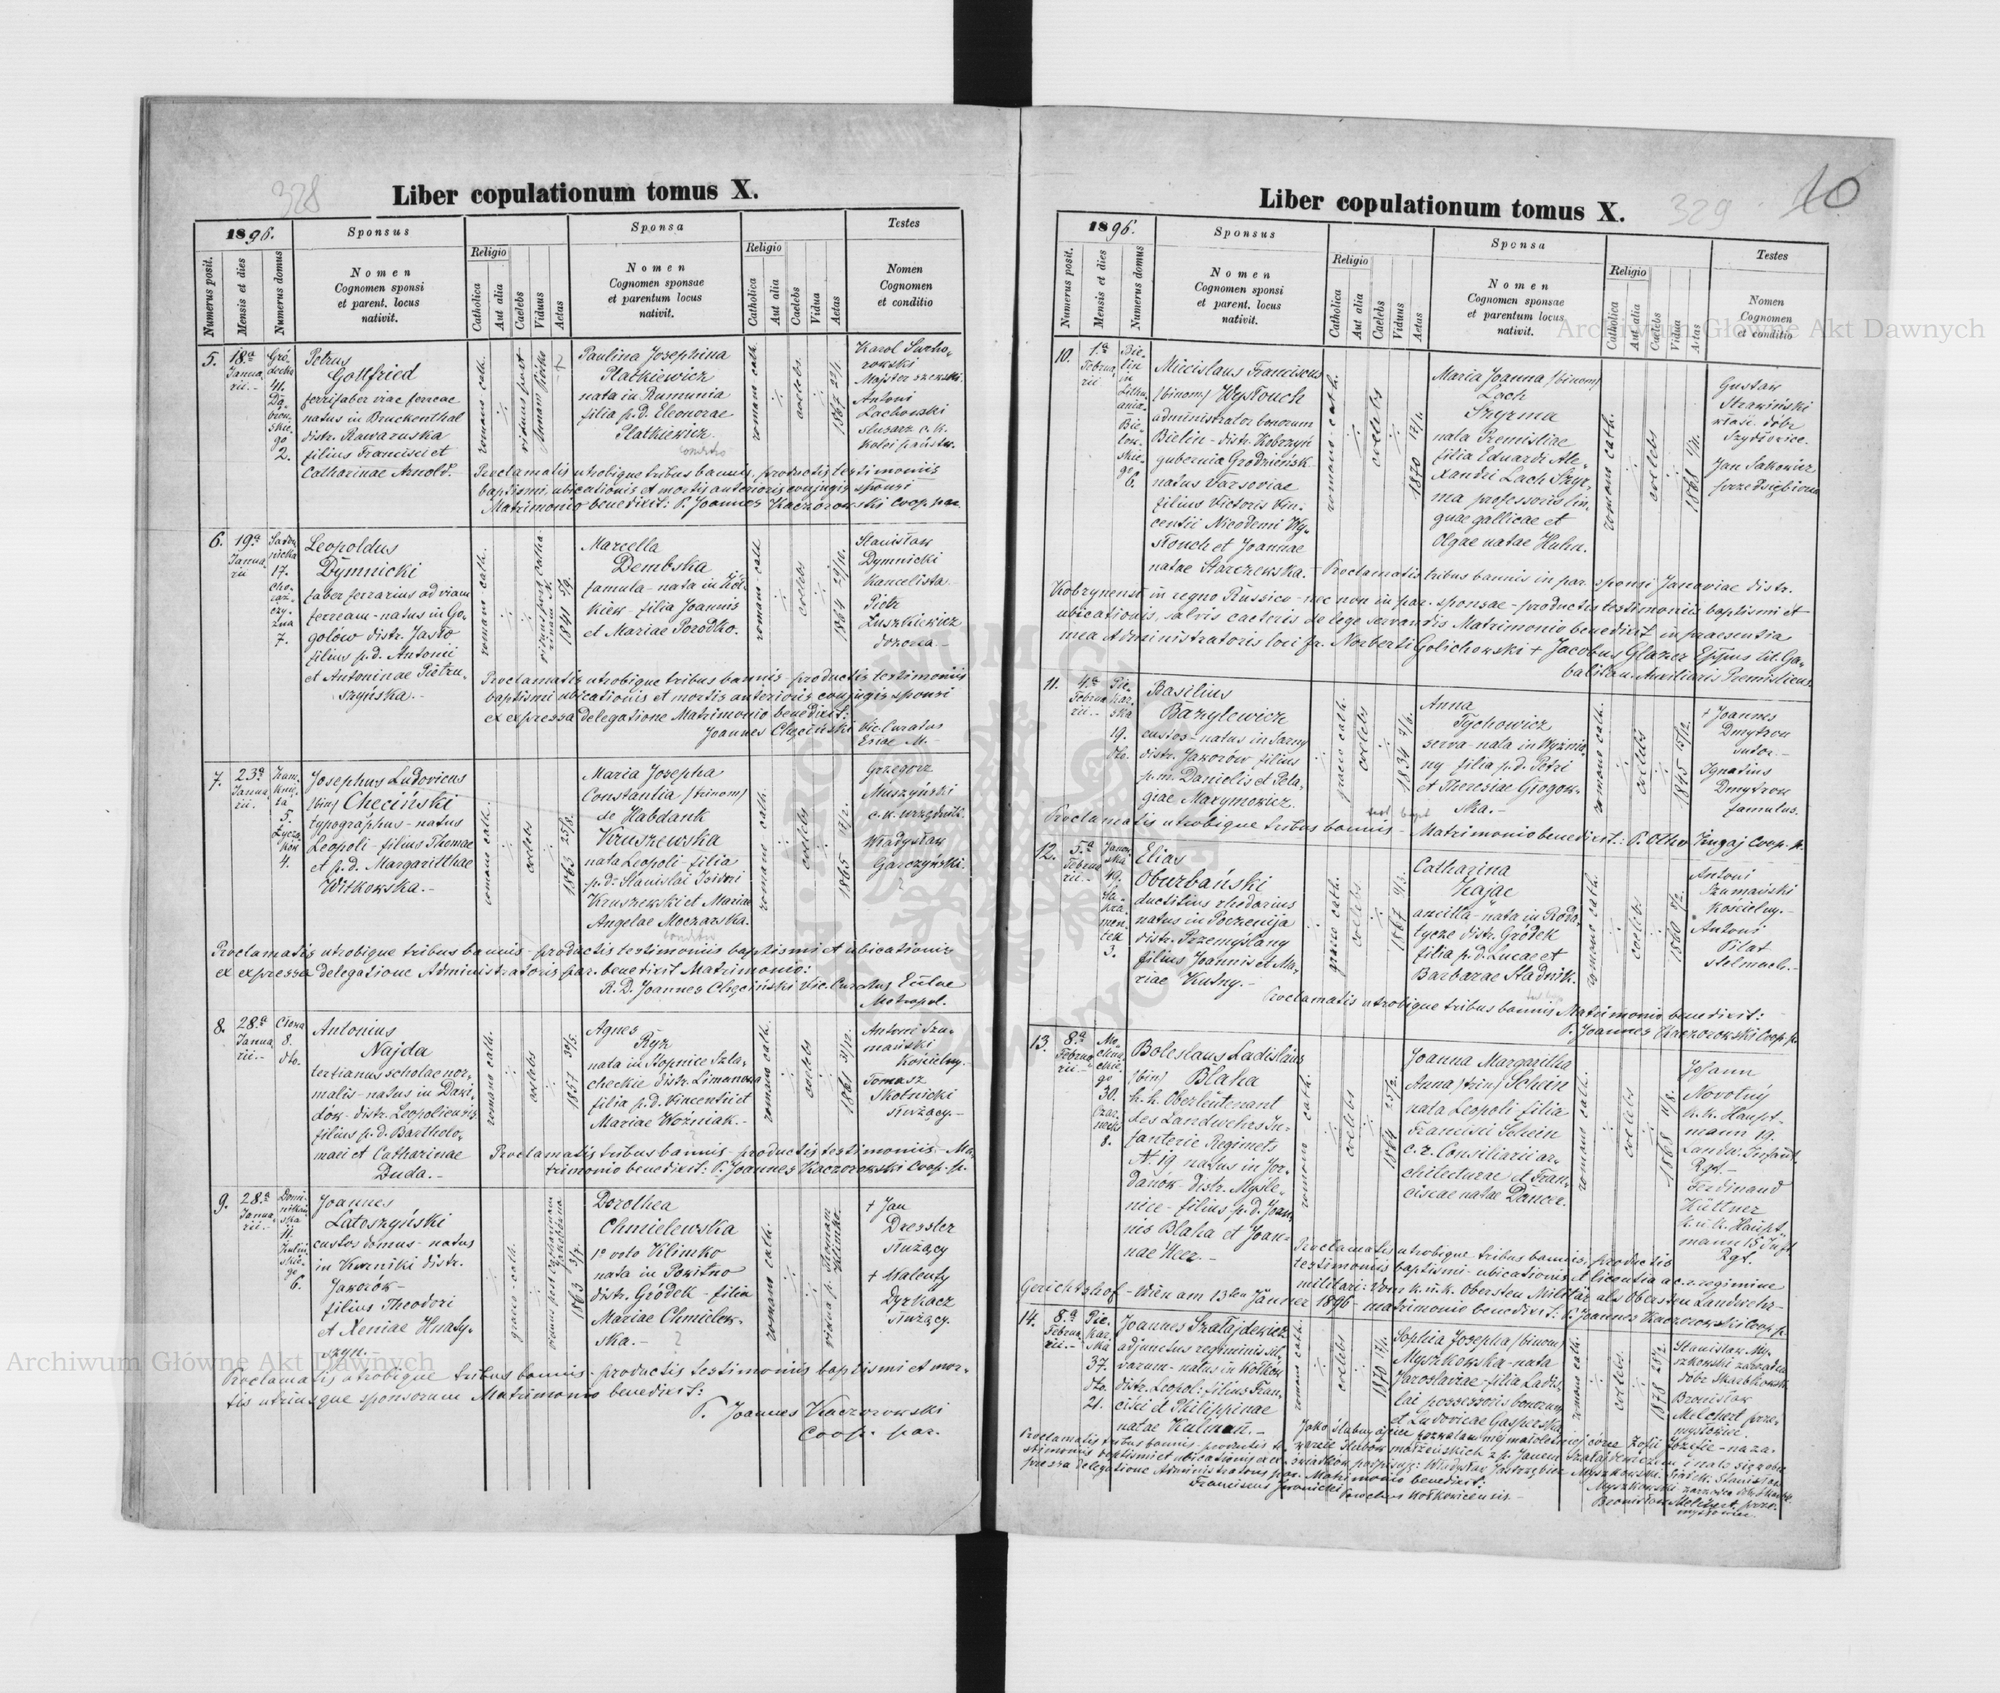 328
Liber copulationum tomus X.
1896.
Sponsus
Sponsa
Testes
Numerus posit.
Mensis et dies
Numerus domus
Nomen
Cognomen sponsi
et parent. locus
nativit.
Religio
Catholica
Aut alia
Caelebs
Viduus
Aetas
Nomen
Cognomen sponsae
et parentum locus
nativit.
Religio
Catholica
Aut alia
Caelebs
Vidua
Aetas
Nomen
Cognomen
et conditio
5.
18a
Janua
rii.-
Gró
decka
41.
2.
Petrus
Gottfried
ferrifaber viae ferreae
natus in Bruckenthal
distr. Rawaruska
filius Francisci et
Catharinae Arnold.-
romano cath.
Paulina Josephina
Platkiewicz
nata in Rumunia
filia p.d. Eleonorae
Platkiewicz.
romano cath.
coelebs.
Karol Sucho-
rowski
Majster szewski
Antoni
Lechowski
slusarz c. k.
kolei państw.
Proclamatis utrobique tribus bannis, productis testimoniis
baptismi, ubicationis et mortis anterioris conjugis sponsi
Matrimonio benedixit: P. Joannes Kaczorowski Coop. par.
6.
19a
Janua
rii
17.
7.
Leopoldus
Dymnicki
faber ferrarius ad viam
ferream - natus in Go-
golów distr. Jasło
filius p.d. Antonii
et Antoninae Pietru-
szyńska.-
romano cath.
1841
Marcella
Dembska
famula - nata in Żół-
kiew - filia Joannis
et Mariae Porodko.
romano cath
coelebs
Stanisław
Dymnicki
kancelista.
Piotr
Luszkiewicz
dozorca -
Proclamatis utrobique tribus bannis - productis testimoniis
baptismi ubicationis et mortis anterioris conjugis sponsi
ex expressa delegatione Matrimonio benedixit:
Joannes Chęciński Vic. Curatus
7.
23a
Janua
rii.
5.
4.
Josephus Ludovicus
(bin) Chęciński
typographus - natus
Leopoli - filius Thomae
et p.d. Margarithae
Witkowska.-
romano cath.
coelebs
1863 25/8.
Maria Josepha
Constantia (trinom)
de Habdank
Kruszewska
nata Leopoli - filia
p.d. Stanislai Isidori
Kruszewski et Mariae
Angelae Moczarska.
romano cath.
coelebs
1865
Grzegorz
Muszyński
c. k. urzędnik
Władysław
Garczyński.
Proclamatis utrobique tribus bannis - productis testimoniis baptismi et ubicationis
ex expressa delegatione Administratoris par. benedixit Matrimonio:
R. D. Joannes Chęciński Vic. Curatus
Metropol.
8.
28.a
Janua
rii.-
Cłowa
8.
dto.
Antonius
Najda
tertianus scholae nor-
malis - natus in Dawi-
dów - distr. Leopoliensis
filius p.d. Bartholo-
maei et Catharinae
Duda.-
romano cath.
coelebs
1857 30/5.
Agnes
Ryż
nata in Słopnice Szla-
checkie distr. Limanowa
filia p.d. Vincentii et
Mariae Woźniak.-
romano cath.
coelebs
1861 31/12.
Antoni Szu-
mański
Kościelny.-
Tomasz
Skotnicki
służący.-
Proclamatis tribus bannis - productis testimoniis - Ma-
trimonio benedixit: P. Joannes Kaczorowski Coop. p.
9.
28.a
Janua
rii.-
Domi-
nikań
ska
11.
6.
Joannes
Latoszyński
custos domus - natus
in Kurniki distr.
Jaworów
filius Theodori
et Xeniae Hnaty-
szyn.-
graeco-cath.
1863 3/7.
Dorothea
Chmielewska
1o voto Klimko
nata in Powitno
distr. Gródek - filia
Mariae Chmielew-
ska.-
romano cath.
vidua p. Thomam
Klimko.
+ Jan
Dressler
służący
+ Walenty
Dyrkacz
służący.
Proclamatis utrobique tribus bannis - productis testimoniis baptismi et mor-
tis utriusque sponsorum Matrimonio benedixit:
P. Joannes Kaczorowski
Coop. par.
329
10
Liber copulationum tomus X.
1896.
Sponsus
Sponsa
Testes
Numerus posit.
Mensis et dies
Numerus domus
Nomen
Cognomen sponsi
et parent. locus
nativit.
Religio
Catholica
Aut alia
Caelebs
Viduus
Aetas
Nomen
Cognomen sponsae
et parentum locus
nativit.
Religio
Catholica
Aut alia
Caelebs
Vidua
Aetas
Nomen
Cognomen
et conditio
10.
1.a
Februa
rii
Bie-
lin
in
6.
Miecislaus Franciscus
(binom) Wysłouch
administrator bonorum
Bielin - distr. Kobrzyń
gubernia Grodzieńsk
natus Varsoviae
filius Victoris Vin-
centii Nicodemi Wy-
słouch et Joannae
natae Starczewska.-
romano cath.
coelebs
1870 17/1.
Maria Joanna (binom)
Lach
Szyrma
nata Premisliae
filia Eduardi Ale-
xandri Lach Szyr-
ma professoris lin-
guae gallicae et
Olgae natae Huhn.
romano cath.
coelebs
1868
Gustaw
Strawiński
właśc. dóbr
Szydłowice.
Jan Sakowicz
przedsiębiorca
Proclamatis tribus bannis in par. sponsi Janoviae distr.
Kobrynensi in regno Russico - nec non in par. sponsae - productis testimoniis baptismi et
ubicationis, salvis caeteris de lege servandis Matrimonio benedixit in praesentia
mea Administratoris loci fr. Norberti Golichowski + Jacobus Glazer Eppus tit. Ga-
balitan. Auxiliaris Premisliens.
11.
4.a
Februa
rii.-
Pie-
kar-
ska
19.
dto.
Basilius
Bazylewicz
custos - natus in Sarny
distr. Jaworów, filius
p.m. Danielis et Pela-
giae Maxymowicz.
graeco cath.
coelebs
1834
Anna
Tychowicz
serva - nata in Wyżnia-
ny filia p.d. Petri
et Theresiae Głogow-
ska.-
romano cath.
coelebs
1845 15/12.
+ Joannes
Dmytrow
sutor.-
Ignatius
Dmytrów
famulus.
Proclamatis utrobique tribus bannis - Matrimonio benedixit: P. Otho Zingaj Coop. p.
12.
5.a
Februa
rii.-
Janow-
ska
49.
3.
Elias
Oburbański
ductitius rhedarius
natus in Poczenija
distr. Przemyślany
filius Joannis et Ma-
riae Kutny.-
graeco cath.
coelebs
1867
Catharina
Zając
ancilla - nata in Roda-
tycze distr. Gródek
filia p.d. Lucae et
Barbarae Stadnik.
romano cath.
coelebs
Antoni
Szumański
Kościelny.-
Antoni
Pilat
stelmach.-
Proclamatis utrobique tribus bannis Matrimonio benedixit:
P. Joannes Kaczorowski Coop. p.
13.
8.a
Februa
rii.-
30.
8.
Boleslaus Ladislaus
(bin) Blaha
k. k. Oberleutenant
des Landwehrs In-
fanterie Regimets
N. 19 natus in Jor-
danów - distr. Myśle-
nice - filius p.d. Joan-
nis Blaha et Joan-
nae Heer.-
romano cath.
coelebs
1864 25/2.
Joanna Margaritha
Anna (trin) Schein
nata Leopoli filia
Francisci Schein
c. r. Consiliarii ar-
chitecturae et Fran-
ciscae natae Dancer.
romano cath.
coelebs
1868 11/8.
Johann
Novotný
k. k. Haupt-
mann 19.
Landw. Infant.
Rgt.-
Ferdinand
Hüttner
k. u. k. Haupt
mann 15 Inft
Rgt.
Proclamatis utrobique tribus bannis, productis
testimoniis baptismi - ubicationis et licentia a c. r. regimine
militari: vom k. u. k. Obersten Militär als Obersten Landwehr-
Gerichtshof - Wien am 13ten Jänner 1896 - matrimonio benedixit: P. Joannes Kaczorowski Coop. p.
14.
8.a
Februa
rii.-
Pie-
kar-
ska
37.
dto.
21.
Joannes Szałajdewicz
adjunctus regiminis sil-
varum - natus in Wołków
distr. Leopol: filius Fran-
cisci et Philippinae
natae Kulman.-
romano cath.
coelebs
1870 17/1.
Sophia Josepha (binom)
Myszkowska - nata
Jaroslaviae - filia Ladis-
lai possessoris bonorum
et Ludovicae Gasperska
romano cath.
coelebs.
1878 28/2.
Stanisław My-
szkowski zarządca
dóbr skarbkowsk.
Bronisław
Melchert prze-
mysłowiec.
Proclamatis tribus bannis - productis te-
stimoniis baptismi et ubicationis et ex-
pressa delegatione Administratoris par. Matrimonio benedixit:
Franciscus Jaronicki Parochus Wołkowiensis.-
Jako ślubny ojciec pozwalam mej małoletniej córce Zofii Józefie - na za-
warcie ślubów małżeńskich z p. Janem Szałajdewiczem
Myszkowski
Bronisław Melchert prze-
mysłowiec.
Archiwum Główne Akt Dawnych
Archiwum Główne Akt Dawnych